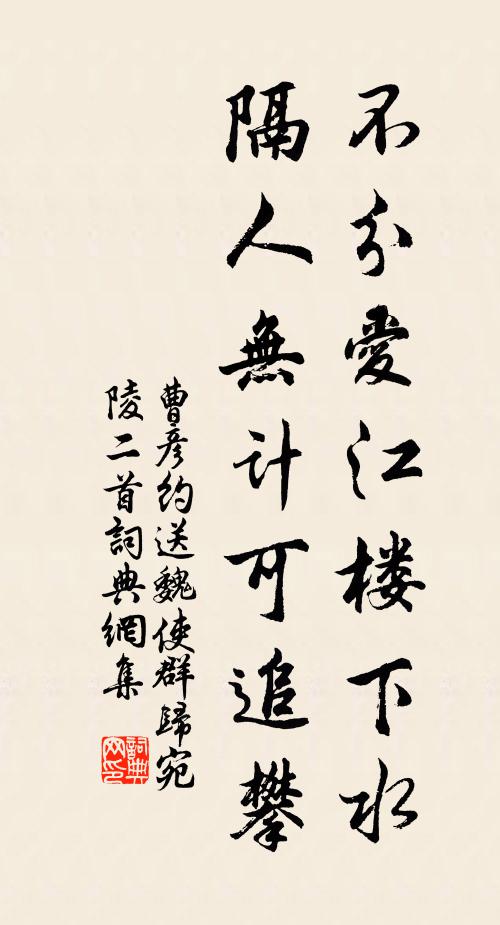 不分愛江楼下水
隔人無计可追攀
曹彦约送魏使群歸宛
陵二首詞典網集
詞典
网印